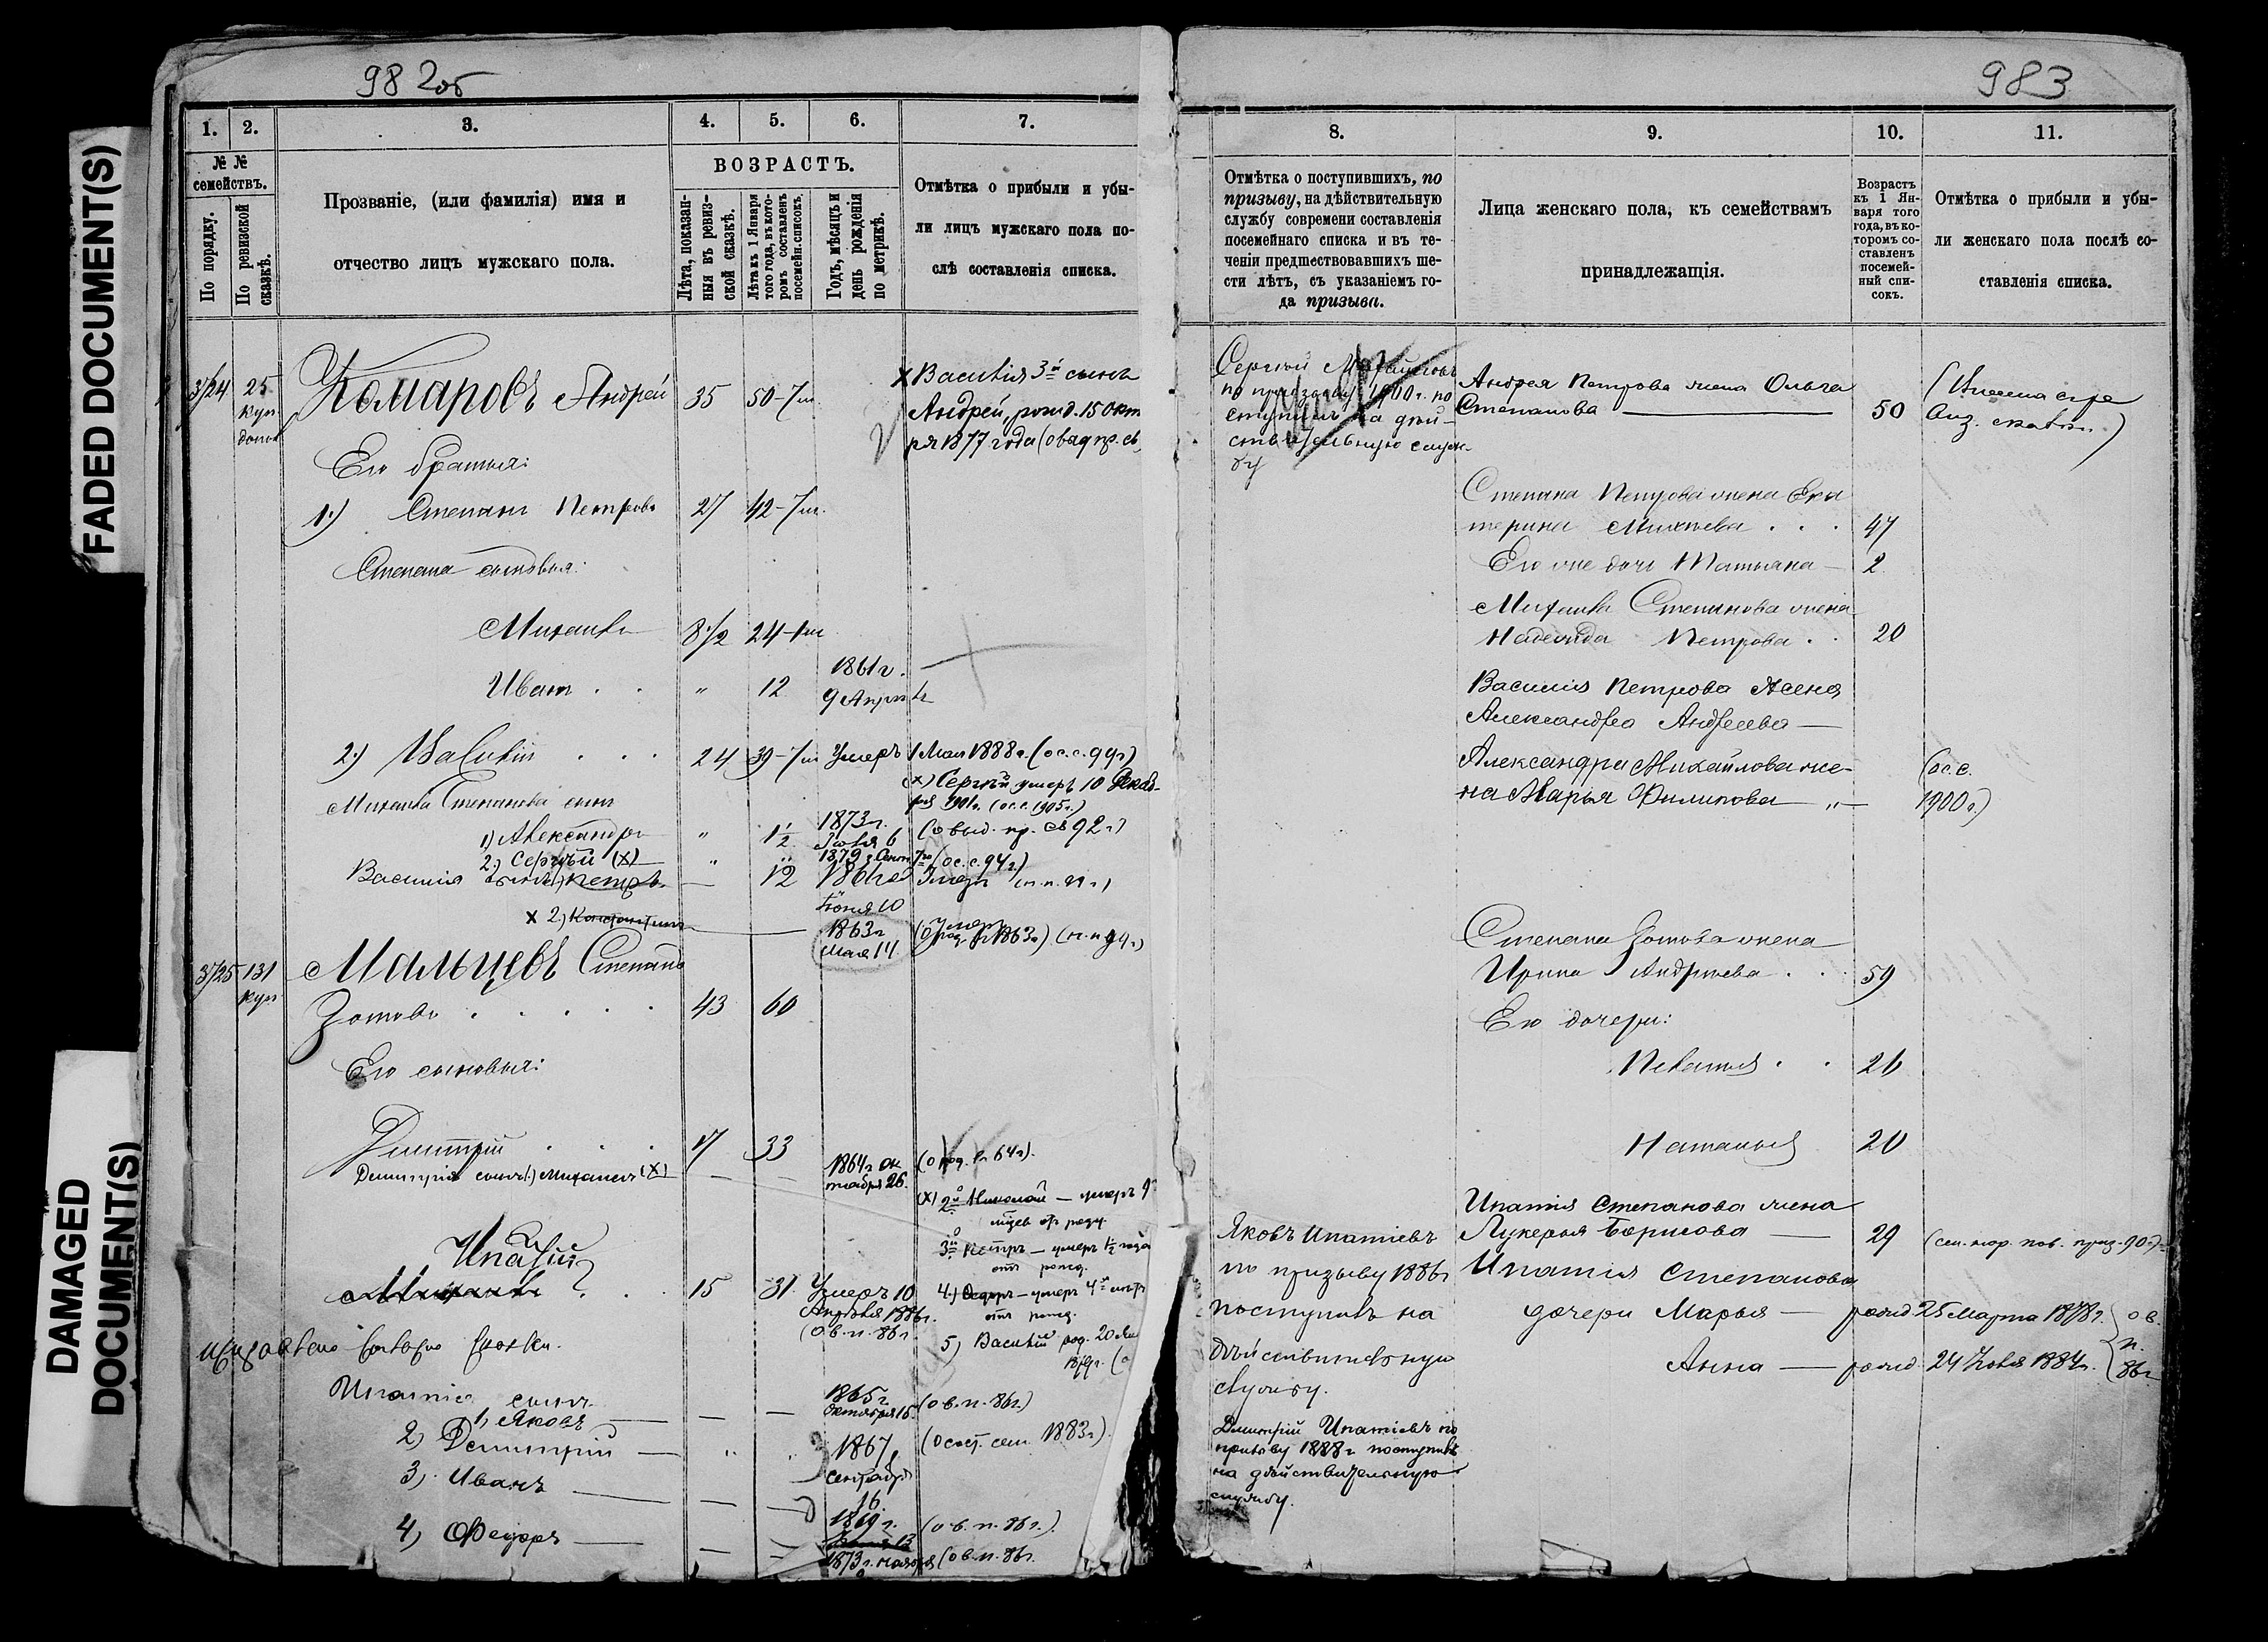 FADED DOCUMENT(S)
DAMAGED
DOCUMENT(S)
982об
1. 2. 3. 4. 5. 6. 7.
№ №
семействъ.
По порядку.
По ревизской
сказкѣ.
Прозваніе, (или фамилія) имя и
отчество лицъ мужскаго пола.
ВОЗРАСТЪ.
Лѣта, показан-
ныя въ ревиз-
ской сказкѣ.
Лѣта къ 1 Января
того года, въ кото-
ромъ составленъ
посемейн. списокъ.
Годъ, мѣсяцъ и
день рожденія
по метрикѣ.
Отмѣтка о прибыли и убы-
ли лицъ мужскаго пола по-
слѣ составленія списка.
3/24 25 Комаровъ Андрей 35 50
Василія 3й сынъ
Андрей, рожд. 15 окт
ря 1877 года
Его братья:
1.) Степанъ Петровъ 27 42
Степана сыновья:
Михаилъ 8 1/2 24
Иванъ . . " 12 1861 г.
9 Апрѣля
2.) Василій . . . 24 39 Умеръ 1 Мая 1888 г. (ос. с. 99 г)
(х) Сергѣй умеръ 10 Декаб-
ря 1901 г. (ос. с. 1905 г.)
Михаила Степанова сынъ
1) Александръ " 1 1/2 1873 г.
Іюля 6
2) Сергѣй (х) " " 1879 г. (ос. с. 94 г.)
Василія сынъ 1) Петръ — 12 1861 г.
Іюня 10
х 2) Константинъ 1863 г
Мая 14.
3/25 131 Мальцевъ Степанъ
Зотовъ . . . . . 43 60
Его сыновья:
Дмитрій . . . 17 33
Дмитрія сынъ 1) Михаилъ (х) — — 1864 г. ок
тября 26.
(х) 2й Николай — умеръ 9
3й Петръ — умеръ 1 1/2 года
отъ рожд.
Ипатій
Михаилъ . . 15 31 Умеръ 10
Апрѣля 1886 г.
(о в. п. 86 г.
4) Ѳедоръ — умеръ 4
отъ рожд.
5) Василій род. 20
Ипатія сынъ
1) Яковъ — — — 1865 г.
Октября 15. (о в. п. 86 г.)
2) Димитрій — " 1867
сентября
16. (о сост. сем. 1883 г.)
3). Иванъ — — — 1869 г. (о в. п. 86 г.).
4) Ѳедоръ — — — 1873 г. (о в. п. 86 г.
983
8. 9. 10. 11.
Отмѣтка о поступившихъ, по
призыву, на дѣйствительную
службу современи составленія
посемейнаго списка и въ те-
ченіи предшествовавшихъ ше-
сти лѣтъ, съ указаніемъ го-
да призыва.
Лица женскаго пола, къ семействамъ
принадлежащія.
Возрастъ
къ 1 Ян-
варя того
года, въ ко-
торомъ со-
ставленъ
посемей-
ный спи-
сокъ.
Отмѣтка о прибыли и убы-
ли женскаго пола послѣ со-
ставленія списка.
Сергѣй Михайловъ
по призыву 1900 г. по
ступилъ на дѣй-
ствительную служ-
бу
Андрея Петрова жена Ольга
Степанова — 50
Степана Петрова жена Ека
терина Михѣева . . . 47
Его же дочь Татьяна — 2
Михаила Степанова жена
Надежда Петрова . . 20
Василія Петрова Жена
Александра Андреева —
Александра Михайлова же-
на Марья Филипова — " — (ос. с.
1900 г.)
Степана Зотова жена
Ирина Андрѣева . . . 59
Его дочери:
Пелагия . . 26
Наталья 20
Ипатія Степанова жена
Лукерья Борисова — 29
Ипатія Степанова
дочери Марья — рожд. 25 Марта 1878 г. о в.
п.
86 г.
Анна — рожд. 24 Іюля 1884 г.
Яковъ Ипатіевъ
по призыву 1886 г
поступилъ на
дѣйствительную
службу.
Дмитрій Ипатіевъ по
призыву 1888 г поступилъ
на дѣйствительную
службу.